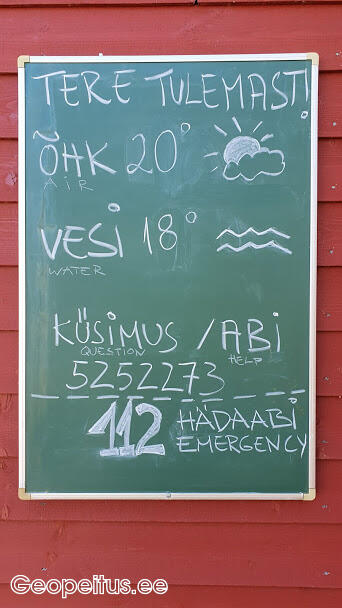 TERE TULEMAST!
ÕHK 20°
AIR
VESI 18°
WATER
KÜSIMUS / ABI
QUESTION HELP
5252273
112 HÄDAABI
EMERGENCY
Geopeitus.ee